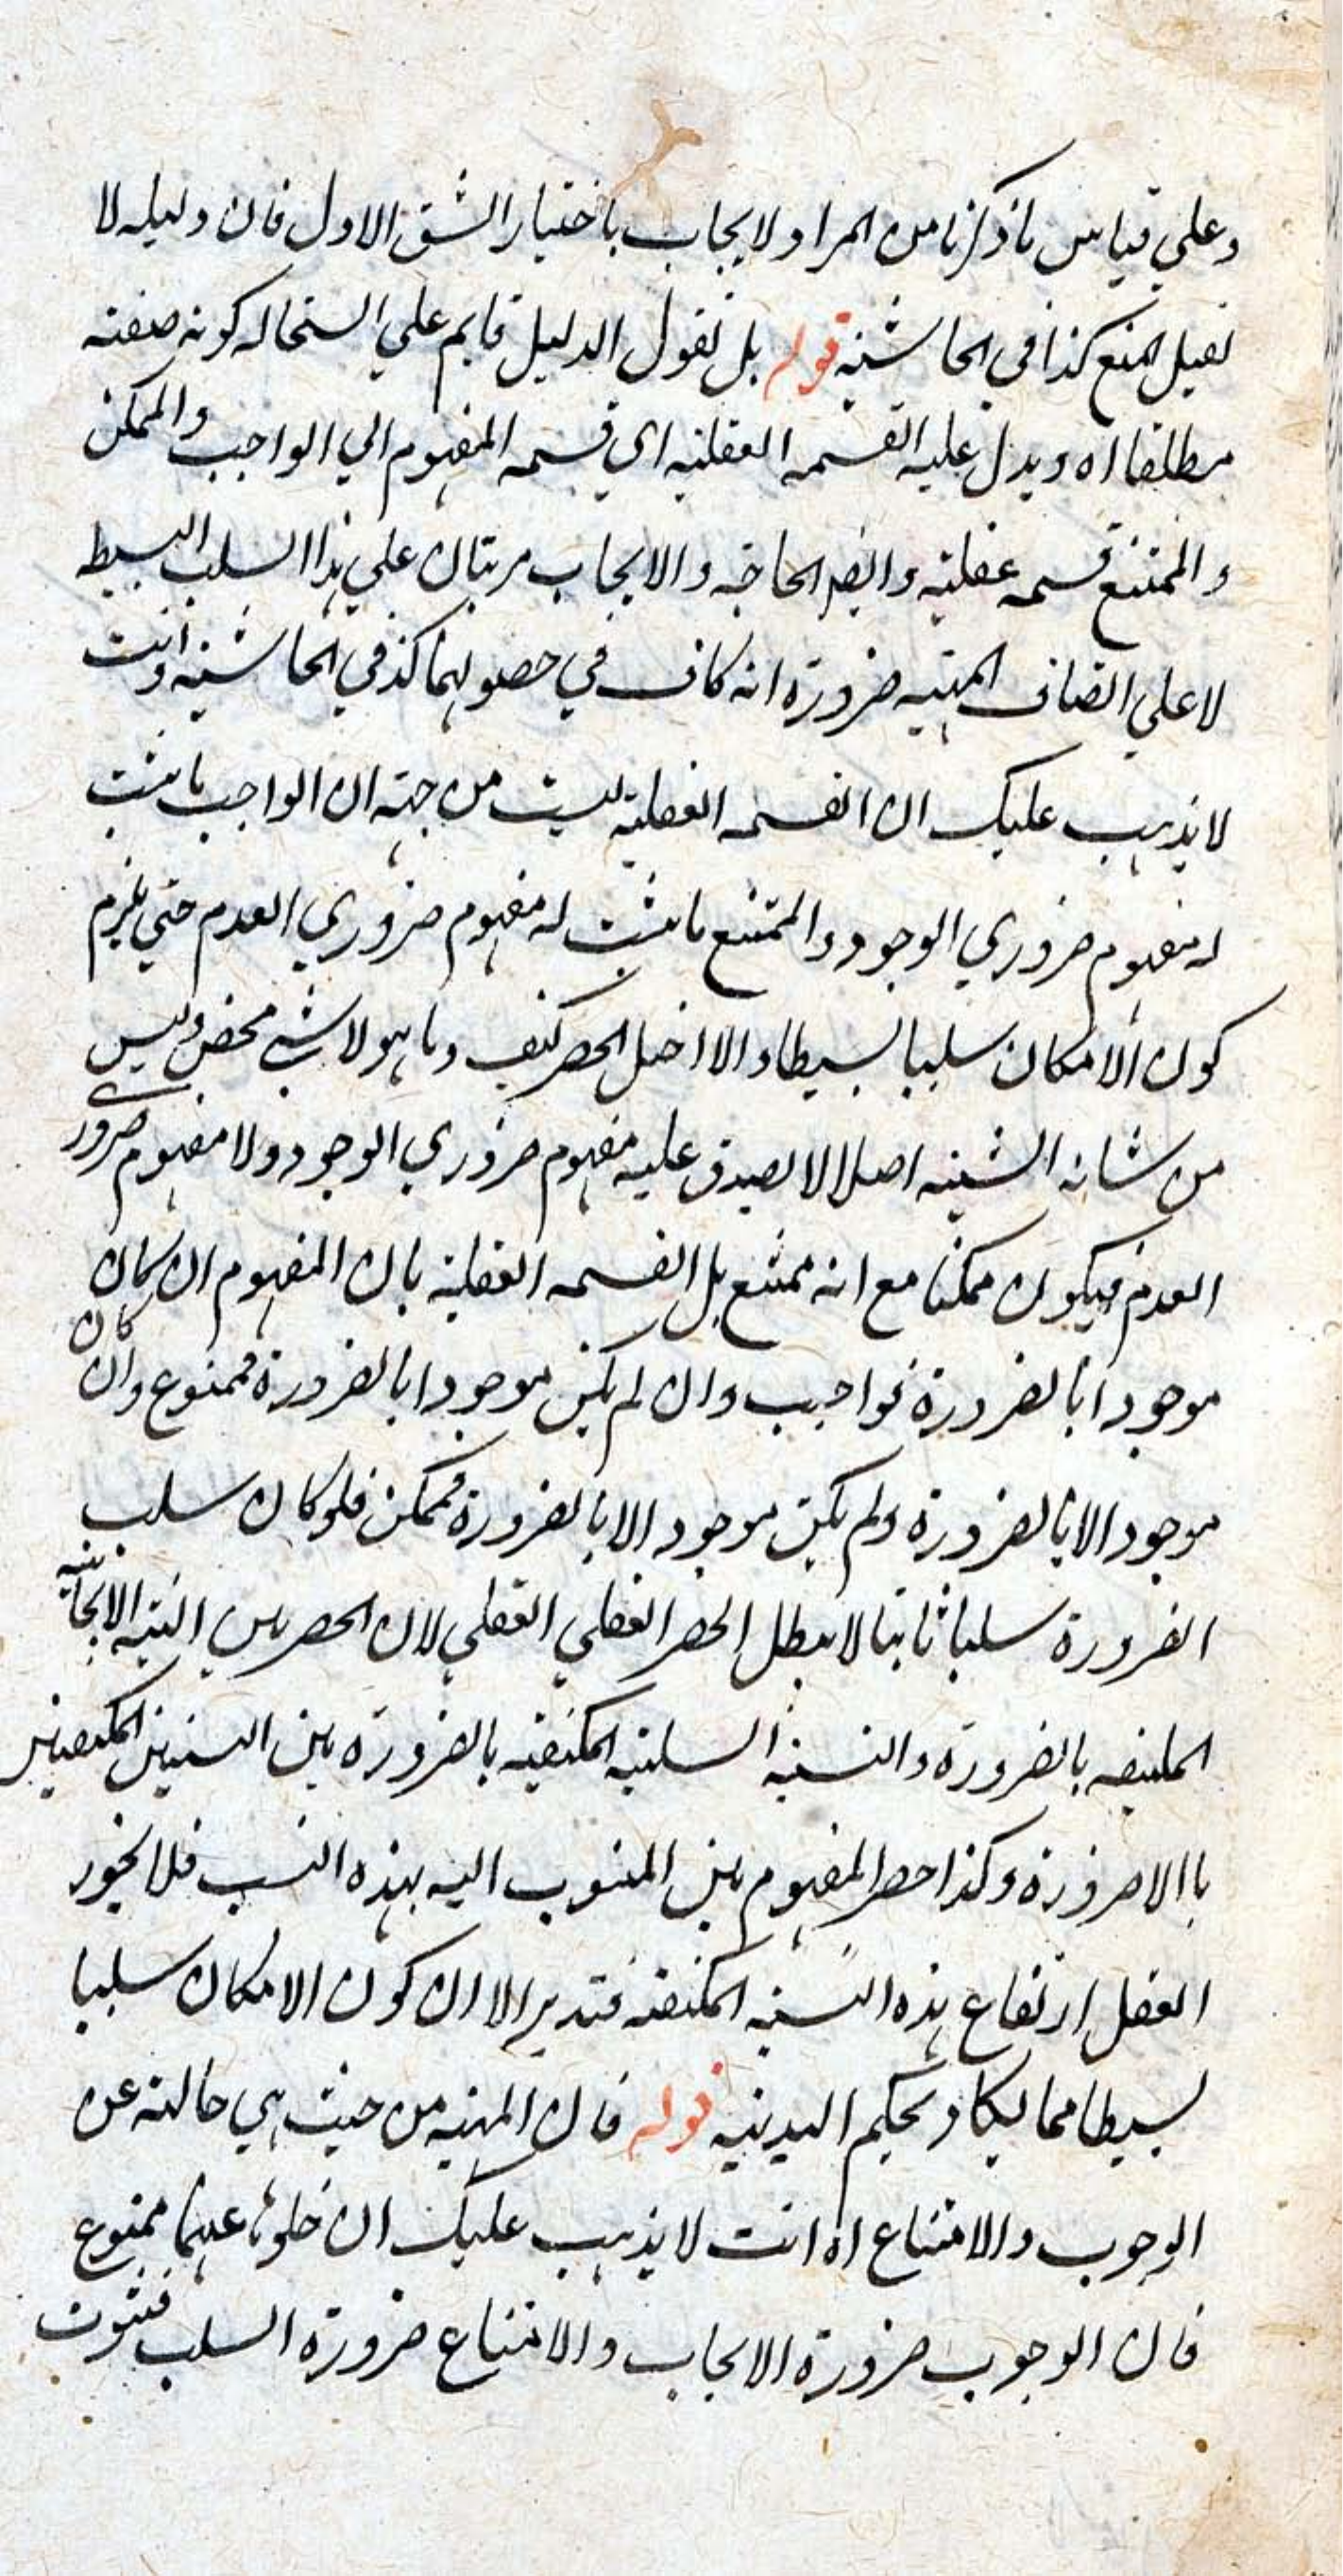 وعلي قياس ما ذكرنا من المراد والايجاب باختيار الشق الاول فان دليله لا
يقبل المنع كذا في الحاشيه قوله بل نقول الدليل قايم علي استحاله كونه صفته
مطلقا اه ويدل عليه القسمه العقليه اي قسمه المفهوم الي الواجب والممكن
والممتنع قسمه عقليه وايضا الحاجه والايجاب مرتبان علي هذا السلب البسيط
لا علي اتصاف المهيه ضرورة انه كاف في حصولهما كذ في الحاشيه وانت
لا يذهب عليك ان القسمه العقليه ليست من جهه ان الواجب ما يثبت
له مفهوم ضروري الوجود والممتنع ما يثبت له مفهوم ضروري العدم حتي يلزم
كون الامكان سلبا بسيطا والا اختل الحصر كيف وما هو لا شي محض وليس
من شانه الشييه اصلا لا يصدق عليه مفهوم ضروري الوجود ولا مفهوم ضروري
العدم فيكون ممكنا مع انه ممتنع بل القسمه العقليه بان المفهوم ان كان
موجودا بالضرورة فواجب وان لم يكن موجودا بالضرورة فممنوع وان كان
موجودا لا بالضرورة ولم يكن موجودا لا بالضرورة فممكن فلو كان سلب
الضرورة سلبا ثابتا لا يبطل الحصر العقلي القطي لان الحصر بين النسبه الايجابيه
المكيفه بالضرورة والنسبه السلبيه المكيفيه بالضرورة بين النسبتين المكيفتين
باالاضرورة وكذا حصر المفهوم بين المنسوب اليه بهذه النسب فلا يجوز
العقل ارتفاع هذه النسبه المكيفه فتدبر الا ان كون الامكان سلبا
بسيطا مما يكاد يحكم البديهيه قوله فان المهيه من حيث هي خاليه عن
الوجوب والامتناع اه انت لا يذهب عليك ان خلوها عنهما ممنوع
فان الوجوب ضرورة الايجاب والامتناع ضرورة السلب فثبوت